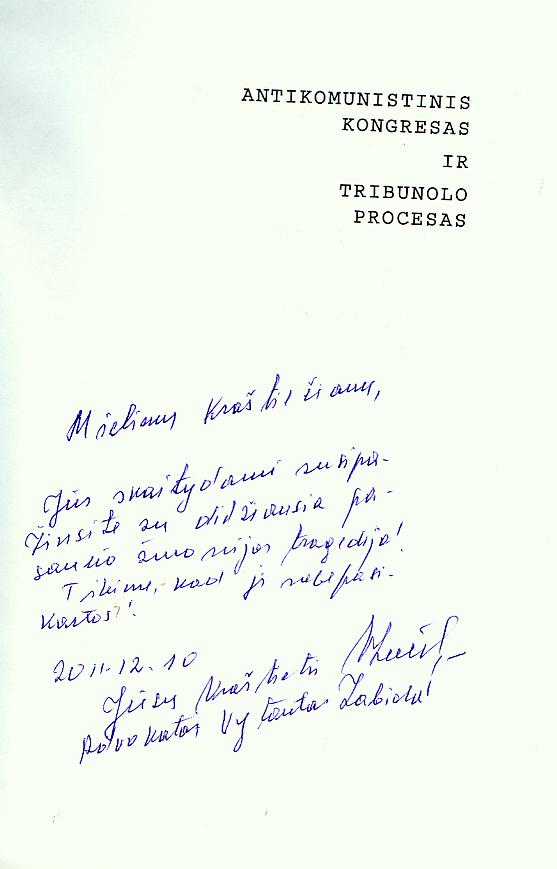 ANTIKOMUNISTINIS
KONGRESAS
IR
TRIBUNOLO
PROCESAS
Mieliems Kraštiečiams,
Jūs skaitydami susipa-
žinsite su didžiausia pa-
saulio žmonijos tragedija!
Tikime, kad ji nebepasi-
kartos!
2011-12-10
Jūsų Kraštietis
Advokatas Vytautas Zabiela!